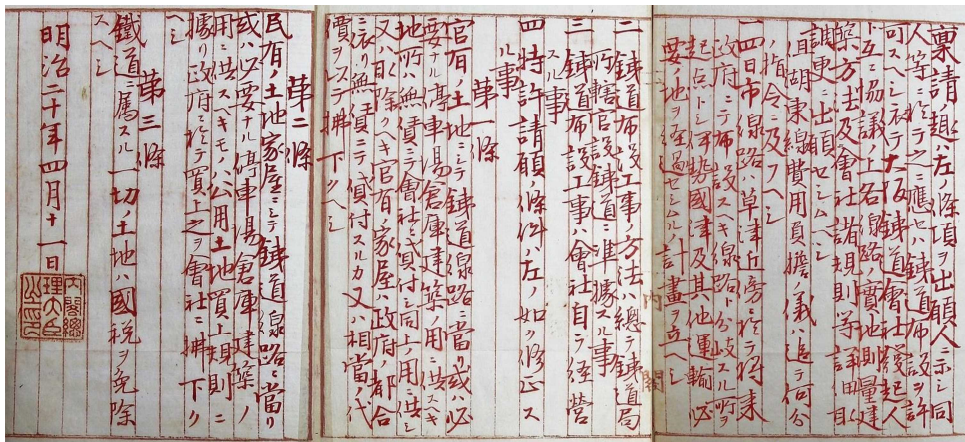 稟請趣ハ左ノ條項ヲ出願人ニ示シ同
人等ニ於テ之ニ應セハ鐵道布設ヲ許
可スヘシ依テ大阪鐵道會社發起人
ト互ニ協議ノ上各線路ノ實地測量建
築方法及會社諸規則等詳細取
調更ニ出願セシムヘシ
但湖東線費用負擔ノ儀ハ追テ何分
ノ指令ニ及フヘシ
一四日市線路ハ草津近傍ニ於テ将来
政府ニテ布設スヘキ線路ト分岐スル所ヲ
起点トシ伊勢國津及其他運輸必
要ノ地ヲ經過セシムル計畫ヲ立ヘシ
二鐵道布設工事ノ方法ハ總テ鐵道局
所轄官設鐵道ニ準據スル事
三鐵道布設工事ハ會社自ラ經營
スル事
四特許請願ノ條件ハ左ノ如ク修正ス
第一條
官有ノ土地ニシテ鐵道線路ニ當リ或ハ必
要ナル停車場倉庫建築ノ用ニ供スヘキ
地所ハ無賃ニテ會社ニ貸付シ同上ノ用ニ供シ
又ハ取除クヘキ官有家屋ハ政府ノ都合
ニ依リ無價ニテ貸付スルカ又ハ相當ノ代
價ヲ以テ拂下クヘシ
第二條
民有ノ土地家屋ニシテ鐵道線路ニ當リ
或ハ必要ナル停車場倉庫建築ノ
用ニ供スヘキモノハ公用土地買上規則ニ
據リ政府ニ於テ買上之ヲ會社ニ拂下ク
ヘシ
第三條
鐵道ニ屬スル一切ノ土地ハ國税ヲ免除
スヘシ
明治二十年四月十一日
内閣總
理大臣
之印
内閣